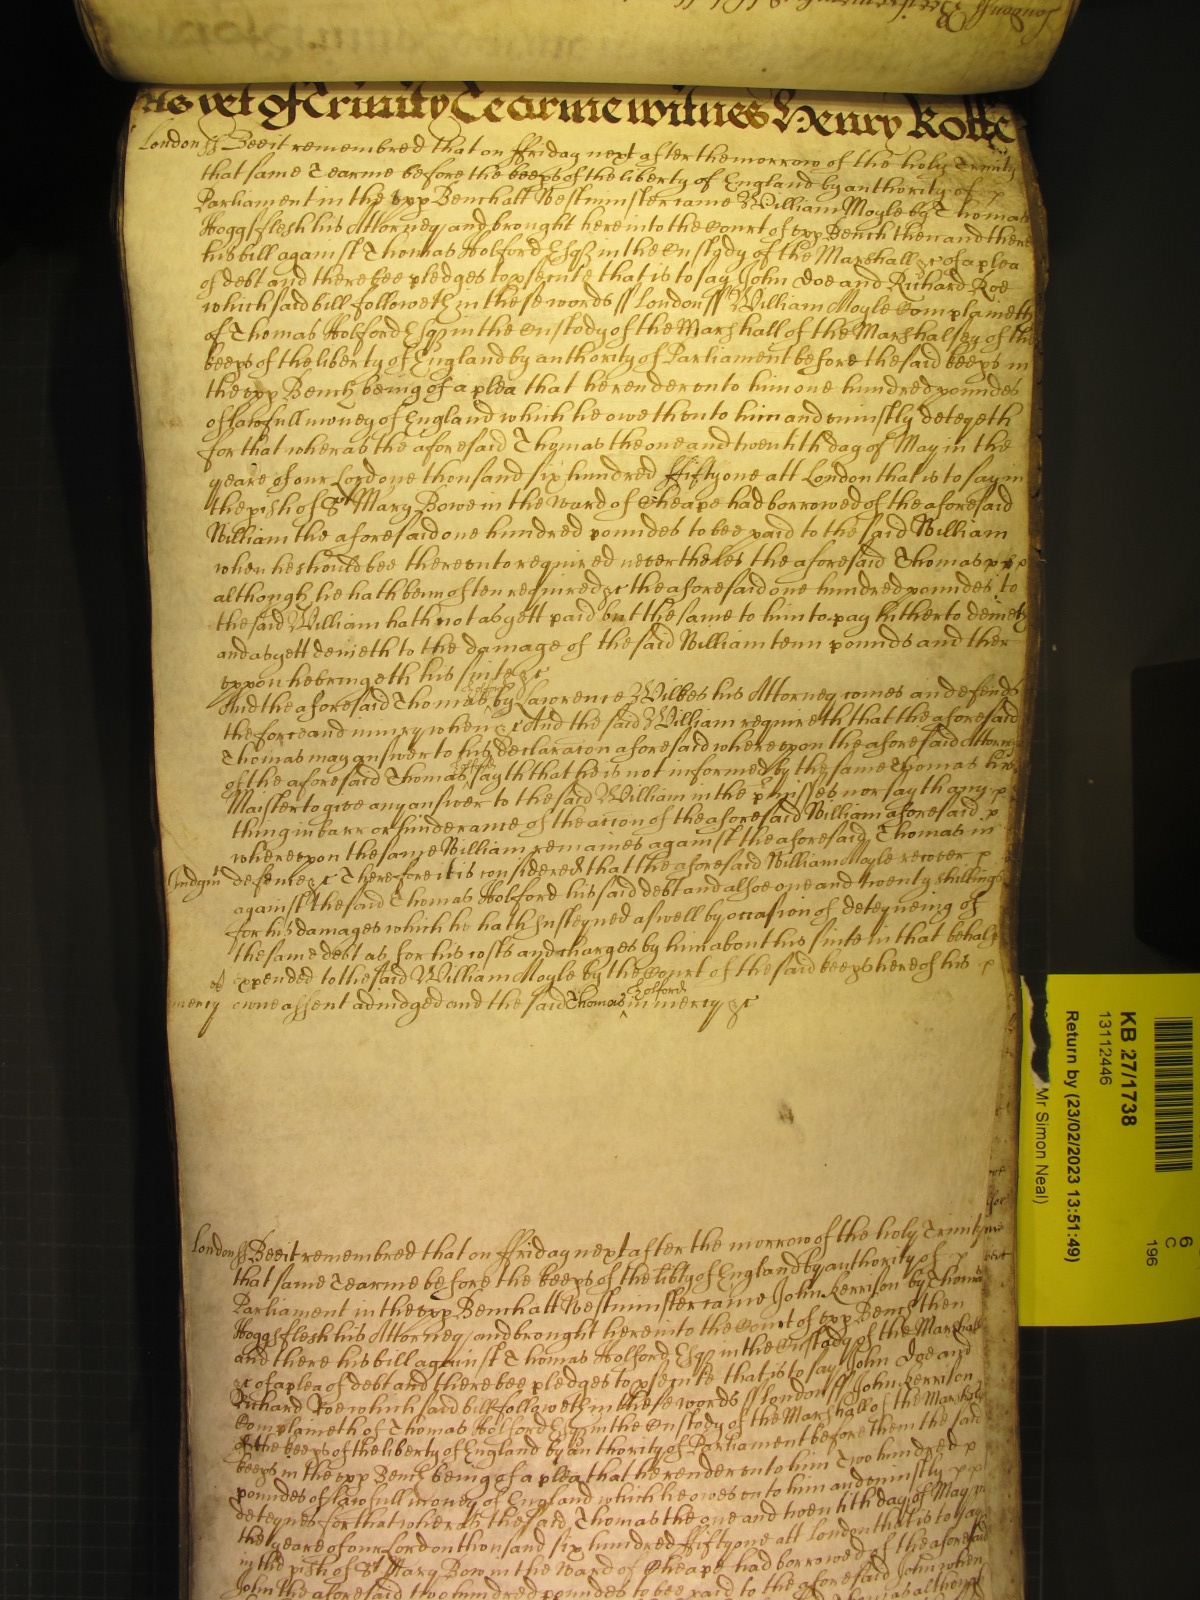 As yet of Trinity Tearme witnes Henry Rolle
London ss Bee it remembred that on ffriday next after the morrow of the holy Trinity
that same Tearme before the keeps of the liberty of England by authority of p
Parliament in the upp Bench att Westminster came William Moyle by Thomas
Hoggsflesh his Attorney, and brought here into the Court of upp Bench then and there
his bill against Thomas Holford Esqr in the Custody of the Marshall &c of a plea
of debt and there bee pledges to psecute that is to say John Doe and Richard Roe
which said bill followeth in these words ss London ss William Moyle Complaineth
of Thomas Holford Esqr in the Custody of the Marshall of the Marshalsey of the
keeps of the liberty of England by authority of Parliament before the said keeps in
the upp Bench being of a plea that he render unto him one hundred poundes
of lawfull money of England which he oweth unto him and uniustly deteyneth
for that wheras the aforesaid Thomas the one and twentith day of May in the
yeare of our Lord one thousand six hundred ffifty one att London that is to say in
the pish of St Mary Bowe in the ward of Cheape had borrowed of the aforesaid
William the aforesaid one hundred poundes to bee paid to the said William
when he should bee thereunto required neverthelesse the aforesaid Thomas p p p
although he hath been often required &c the aforesaid one hundred poundes to
the said William hath not as yett paid but the same to him to pay hitherto denieth
and as yett denieth to the damage of the said William tenn pounds and ther
uppon he bringeth his suite &c
And the aforesaid Thomas Holford by Lawrence Wilkes his Attorney comes and defends
the force and iniury when &c And the said William requireth that the aforesaid
Thomas may answer to his declaracon aforesaid whereupon the aforesaid Attorney
of the aforesaid Thomas Holford sayth that he is not informed by the same Thomas his
Maister to give any answer to the said William in the pmisses nor say th any p
thing in barr or hinderance of the accon of the aforesaid William aforesaid p
whereupon the same William remaines against the aforesaid Thomas in
Judgmt defence &c Therefore it is considered that the aforesaid William Moyle recover p
against the said Thomas Holford his said debt and alsoe one and twenty shillings
for his damages which he hath susteyned aswell by occasion of deteyneing of
the same debt as for his costs and charges by him about his suite in that behalf
expended to the said William Moyle by the Court of the said keeps here of his p
mercy owne assent adiudged and the said Thomas Holford in mercy &c
London ss Bee it remembred that on ffriday next after the morrow of the holy Trinity
that same Tearme before the keeps of the libty of England by authority of p
Parliament in the upp Bench att Westminster came John Kerrison by Thomas
Hoggsflesh his Attorney, and brought here into the Court of upp Bench then
and there his bill against Thomas Holford Esqr in the Custody of the Marshall
&c of a plea of debt and there bee pledges to psecute that is to say John Doe and
Richard Roe which said bill followeth in these words ss London ss John Kerrison
Complaineth of Thomas Holford Esqr in the Custody of the Marshall of the Marshalsey
of the keeps of the liberty of England by authority of Parliament before them the said
keeps in the upp Bench being of a plea that he render unto him Two hundred p
poundes of lawfull money of England which he owes unto him and uniustly p p
deteynes for that wheras the said Thomas the one and twentith day of May in
the yeare of our Lord on thousand six hundred ffifty one att London that is to say
in the pish of St Mary Bow in the ward of Cheape had borrowed of the aforesaid
John the aforesaid two hundred poundes to bee paid to the aforesaid John when
KB 27/1738
13112446
Return by (23/02/2023 13:51:49)
Mr Simon Neal)
6
C
196